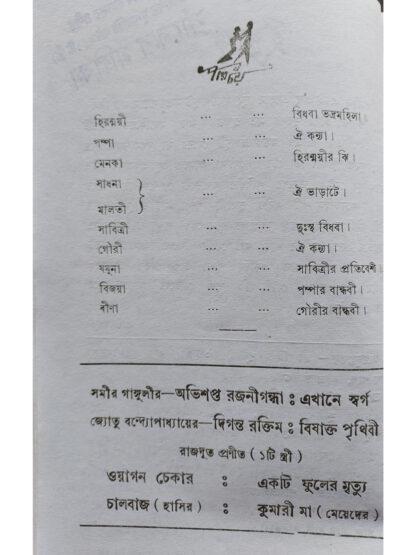 পরিচয়
হিরণ্ময়ী ... ... বিধবা ভদ্রমহিলা।
পম্পা ... ... ঐ কন্যা।
মেনকা ... ... হিরণ্ময়ীর ঝি।
সাধনা
মালতী } ... ... ঐ ভাড়াটে।
সাবিত্রী ... ... দুঃস্থ বিধবা।
গৌরী ... ... ঐ কন্যা।
যমুনা ... ... সাবিত্রীর প্রতিবেশী।
বিজয়া ... ... পম্পার বান্ধবী।
বীণা ... ... গৌরীর বান্ধবী।
সমীর গাঙ্গুলীর—অভিশপ্ত রজনীগন্ধা : এখানে স্বর্গ
জ্যোতু বন্দ্যোপাধ্যায়ের—দিগন্ত রক্তিম : বিষাক্ত পৃথিবী
রাজদূত প্রণীত (১টি স্ত্রী)
ওয়াগন চেকার : একটি ফুলের মৃত্যু
চালবাজ (হাসির) : কুমারী মা (মেয়েদের)